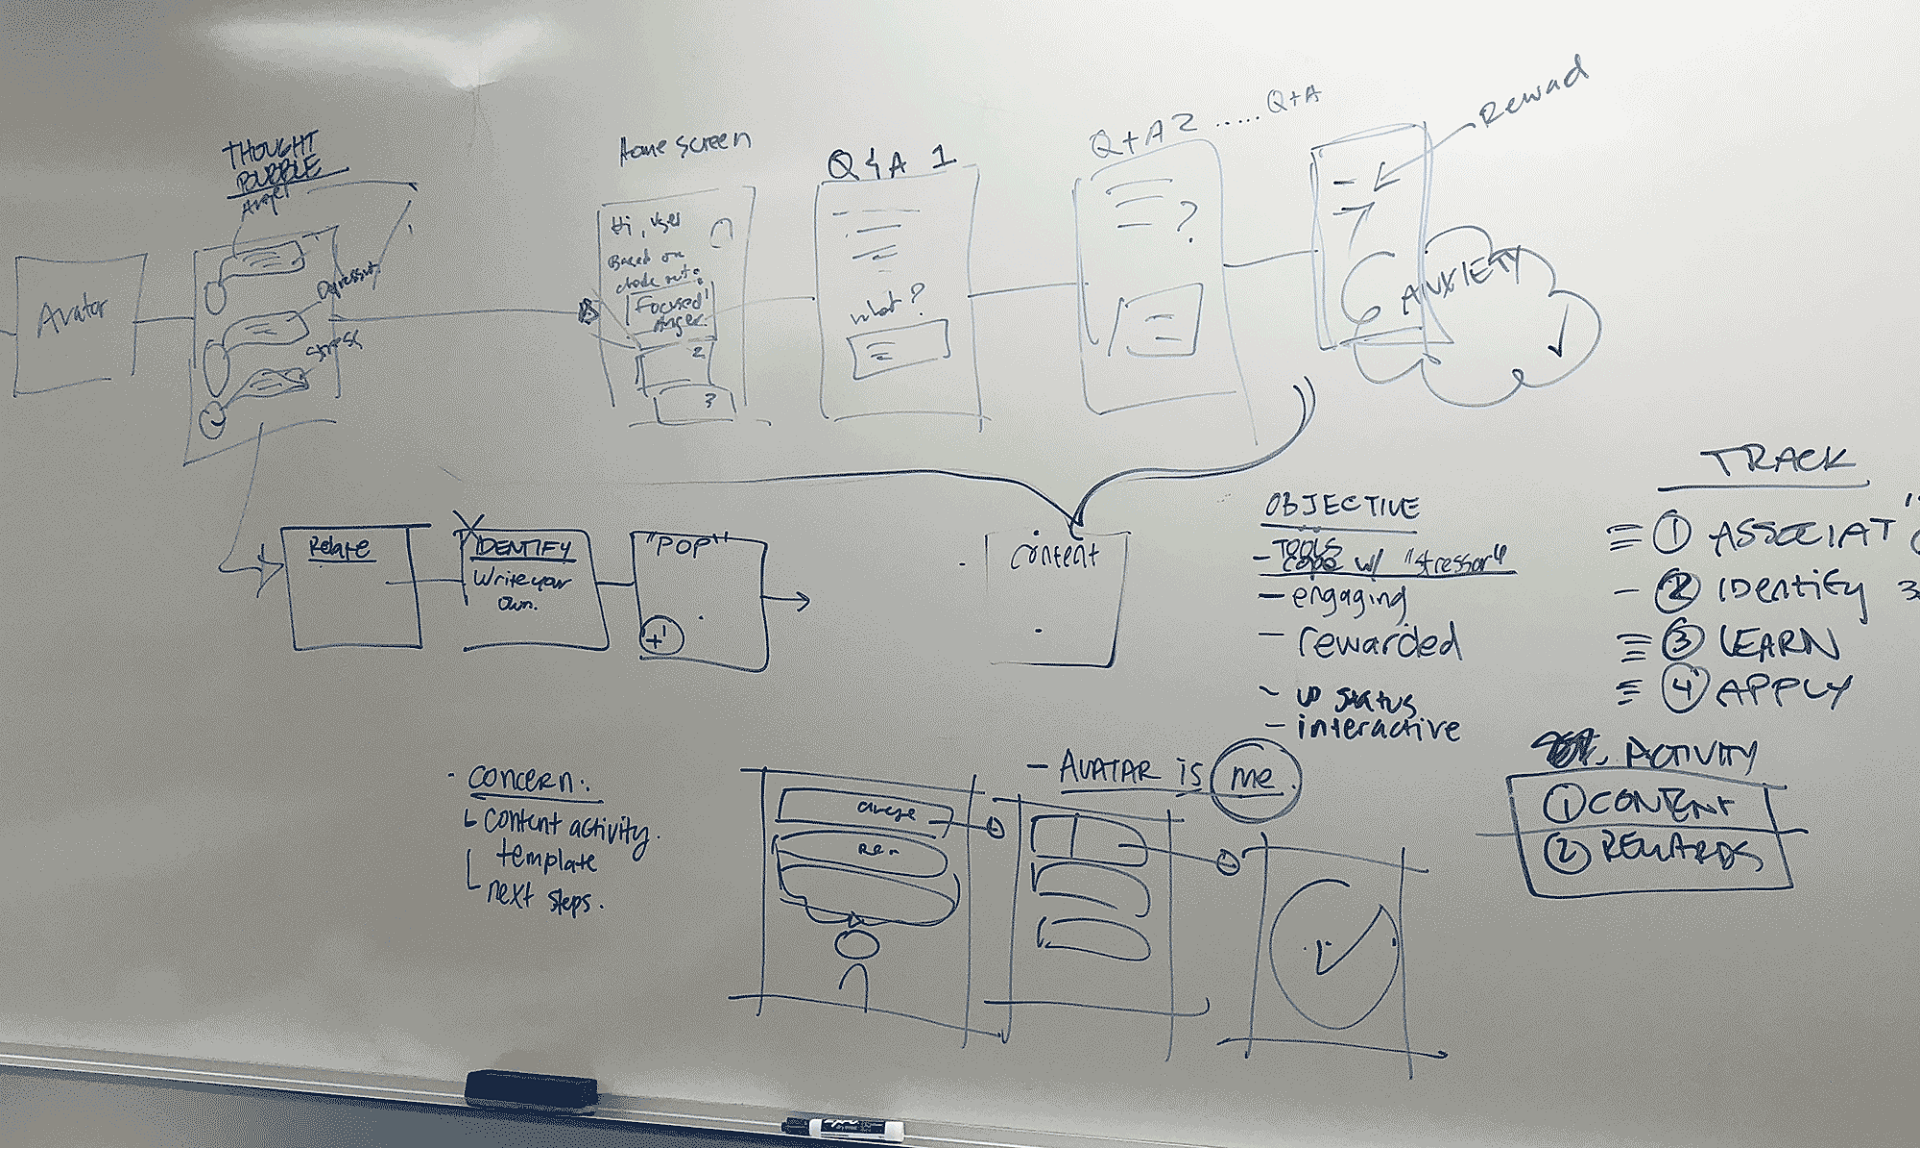 THOUGHT
BUBBLE
Anger
Avatar
Depression
Stress
Home screen
Hi, User
Based on
check out:
Focused
Anger.
2
3
Q & A 1
what?
Q + A 2 ..... Q + A
?
Reward
ANXIETY
Relate
IDENTIFY
Write your
own.
"POP"
+1
Content
OBJECTIVE
- TOOLS
cope w/ "stressor"
- engaging
- rewarded
- status
- interactive
TRACK
1 ASSOCIAT
- 2 IDentify 3
3 LEARN
4 APPLY
ACTIVITY
1 CONTENT
2 REWARDS
- Concern:
content activity.
template
next steps.
- AVATAR IS me.